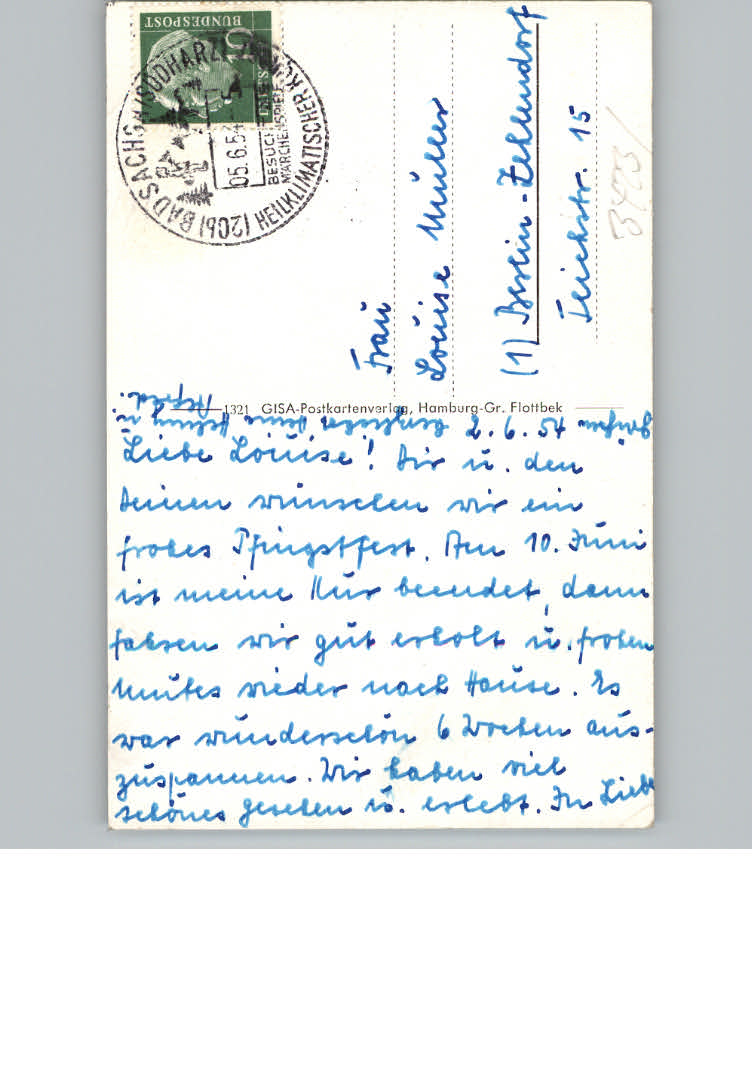 BUNDESPOST
10
(20b) BAD SACHSA (SÜDHARZ)
HEILKLIMATISCHER
05.6.54
BESUCHT
MÄRCHEN
Frau
Louise Müller
(1) Berlin-Zehlendorf
Teichstr. 15
1321 GISA-Postkartenverlag, Hamburg-Gr. Flottbek
2. 6. 54
Liebe Louise! Dir u. den
Deinen wünschen wir ein
frohes Pfingstfest. Am 10. Juni
ist meine Kur beendet, dann
fahren wir gut erholt u. frohen
Mutes wieder nach Hause. Es
war wunderschön 6 Wochen aus-
zuspannen. Wir haben viel
schönes gesehen u. erlebt. In Liebe
grüßen